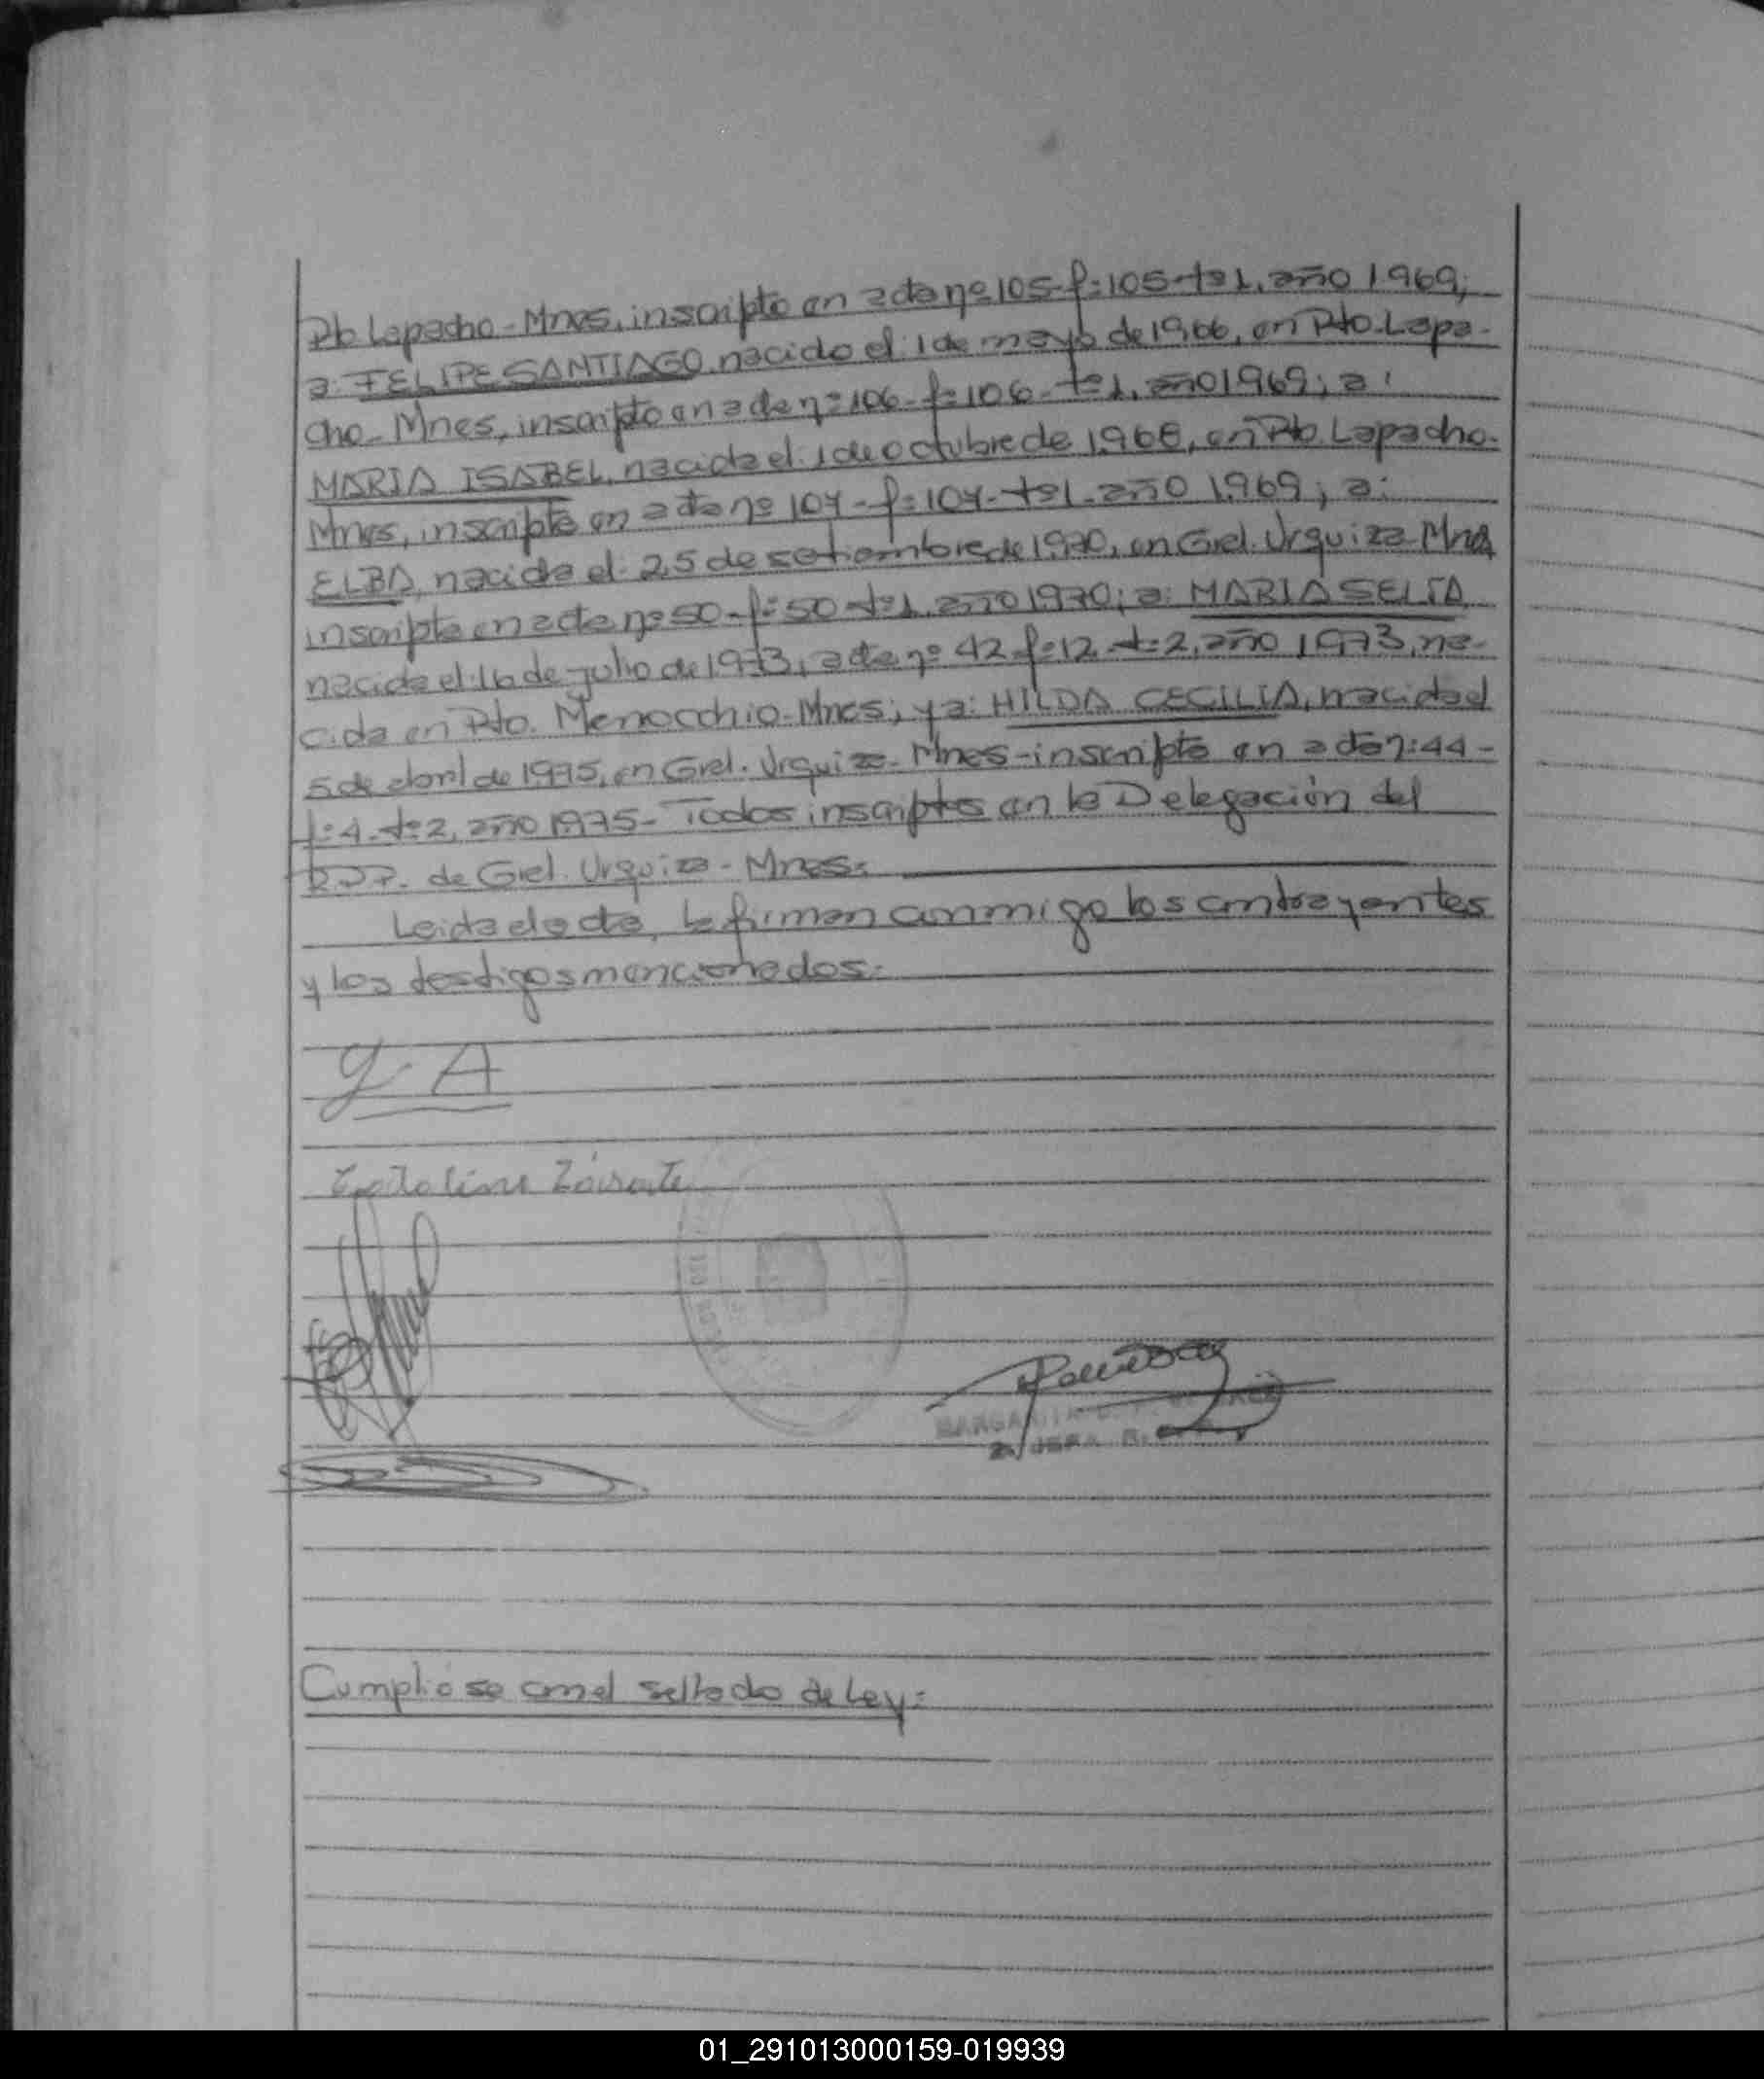 Pto Lapacho-Mnes, inscripto en acta nº105-fº105-tº1, año 1.969;
a: FELIPE SANTIAGO, nacido el: 1 de mayo de 1966, en Pto. Lapa-
cho-Mnes, inscripto en acta nº106-fº106-tº1, año 1969; a:
MARIA ISABEL, nacida el: 1 de octubre de 1.968, en Pto. Lapacho-
Mnes, inscripta en acta nº 107-fº107-tº1-año 1.969; a:
ELBA, nacida el: 25 de setiembre de 1970, en Gral. Urquiza-Mnes
inscripta en acta nº50-fº50-tº1, año 1970; a: MARIA SELIA
nacida el: 16 de julio de 1973, acta nº 42-fº12-tº2, año 1973, na-
cida en Pto. Menocchio-Mnes; y a: HILDA CECILIA, nacida el
5 de abril de 1975, en Gral. Urquiza-Mnes-inscripta en acta nº44-
fº4-tº2, año 1975- Todos inscriptos en la Delegación del
R.P.P. de Gral. Urquiza-Mnes:
Leida el acta, la firman conmigo los contrayentes
y los testigos mencionados:
Y. A
Catalina Zárate
MARGARITA
JEFA
Cumplióse con el sellado de Ley:
01_291013000159-019939